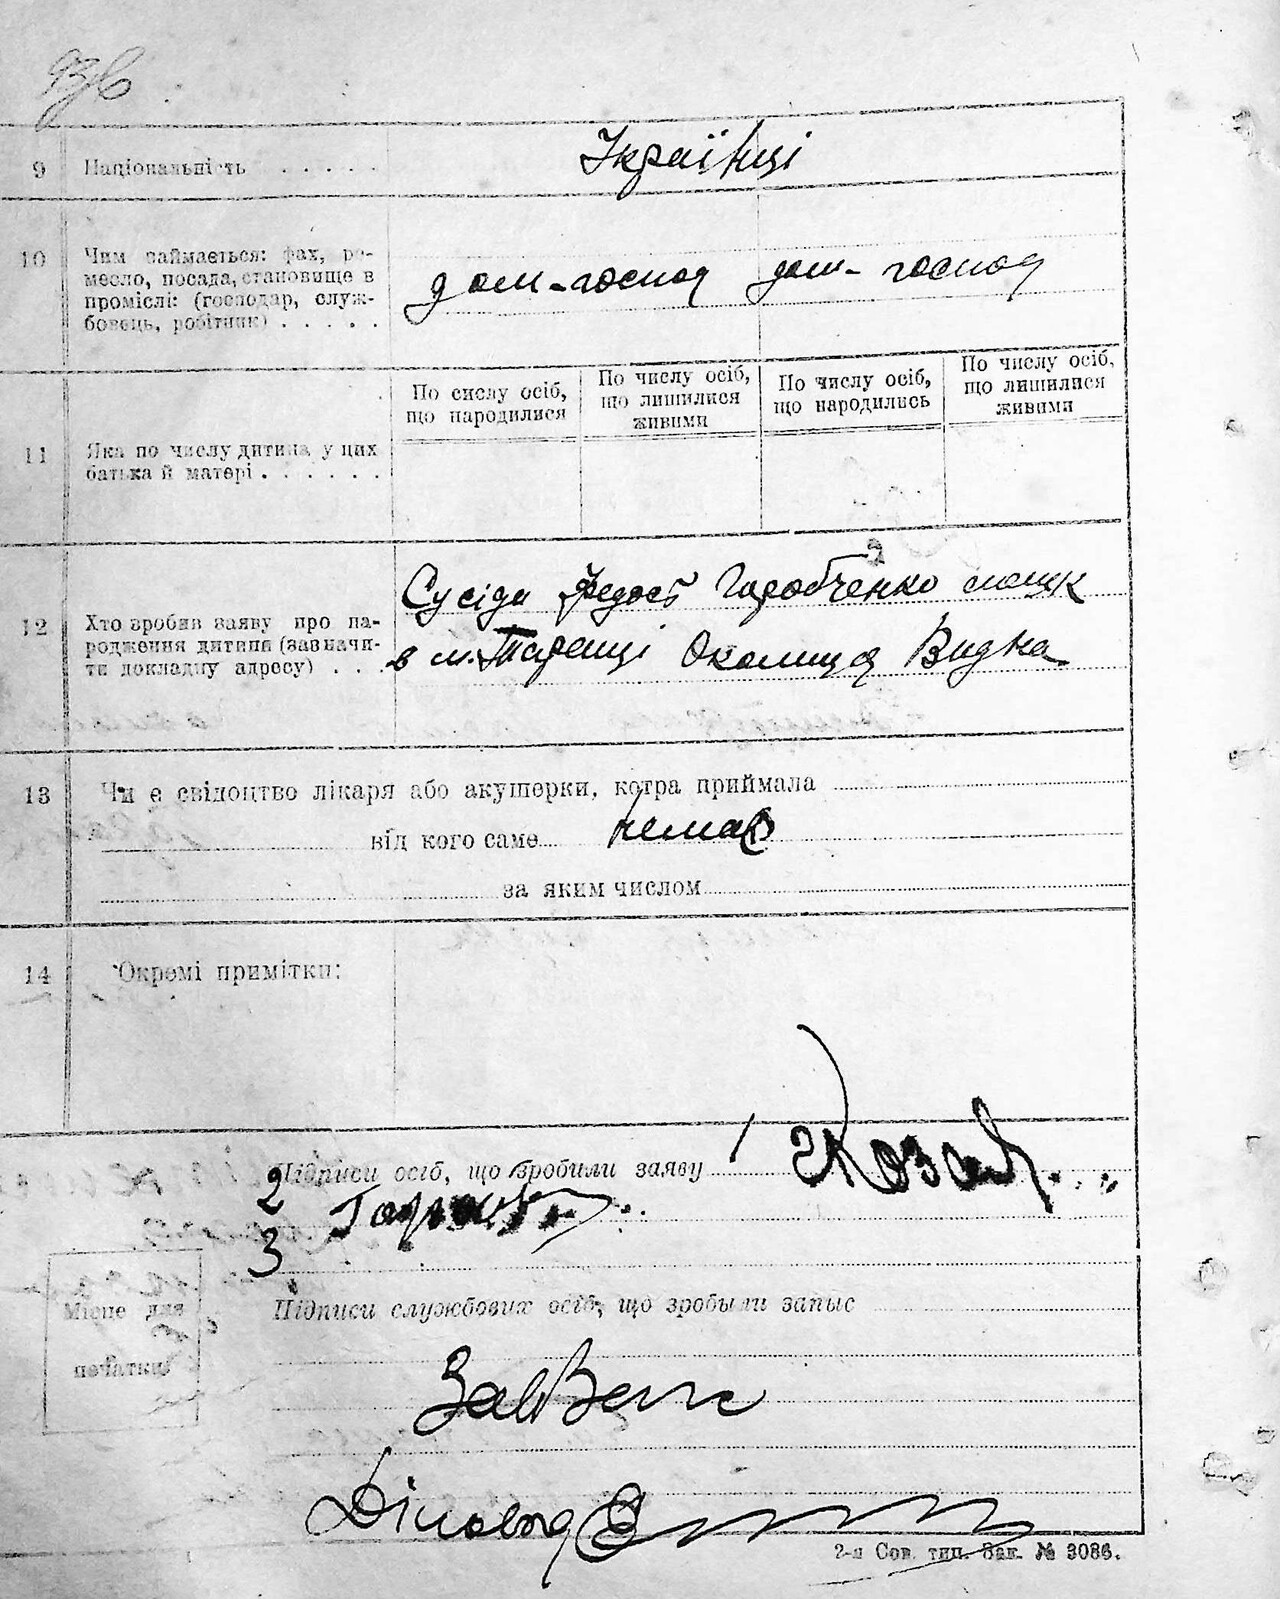 93б
9 Національність . . . . . Українці
10 Чим займається: фах, ре-
месло, посада, становище в
проміслі: (господар, служ-
бовець, робітник) . . . . .
дом-господ дом-господ
По сислу осіб, що народилися
По числу осіб, що лишилися живими
По числу осіб, що народились
По числу осіб, що лишилися живими
11 Яка по числу дитина у цих
батька й матері . . . . . .
12 Хто зробив заяву про на-
родження дитини (зазначи-
ти докладну адресу) . . .
Сусіди Федост Горобченко мешк
в м. Таращі Околиця
13 Чи є свідоцтво лікаря або акушерки, котра приймала
від кого саме немає
за яким числом
14 Окремі примітки:
Підписи осіб, що зробили заяву 1
2
3
Місце для
печатки
Підписи службових осіб, що зробыли запыс
Діловод
2-я Сов. тип. Зак. № 3086.